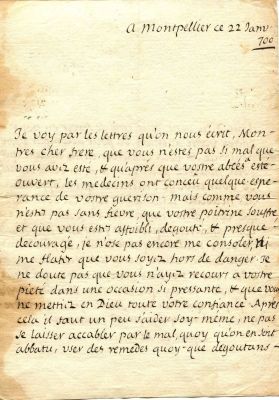 A Montpellier ce 22 Janv.
700
Je voy par les lettres qu'on nous écrit, Mon-
tres cher frere, que vous n'estes pas si mal que
vous avez esté, & qu'après que vostre abcés a esté
ouvert, les medecins ont conceu quelque espe-
rance de vostre guerison. mais comme vous
n'estes pas sans fievre, que vostre poitrine souffre
et que vous estes affoibli, degouté, & presque
decouragé, je n'ose pas encore me consoler ni
me flater que vous soyez hors de danger. Je
ne doute pas que vous n'ayiez recours a vostre
pieté dans une occasion si pressante, & que vous
ne mettiez en Dieu toute vôtre confiance. Après
cela il faut un peu s'aider soy-même, ne pas
se laisser accabler par le mal, quoy qu'on en soit
abbatu; user des remedes quoy-que degoutans-